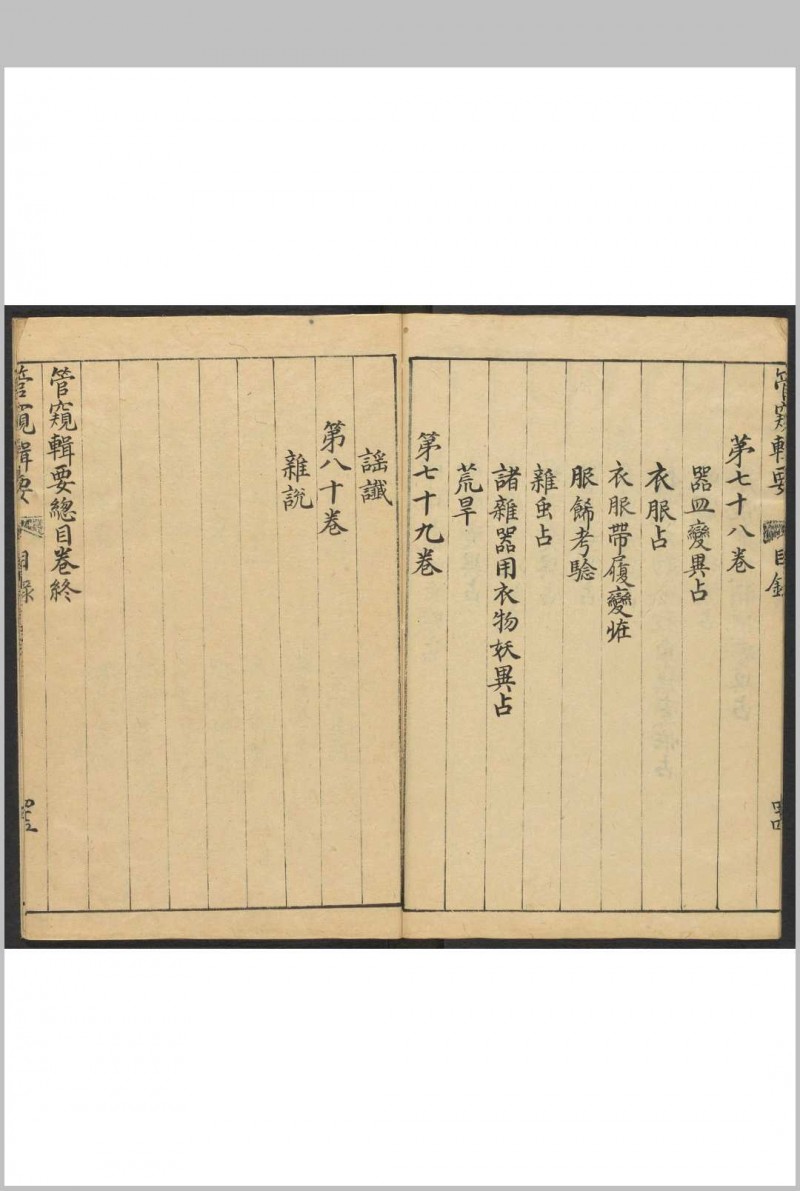 管窺輯要
目錄
第七十八卷
器皿變異占
衣服占
衣服帶履變恠
服餙考驗
雜虫占
諸雜器用衣物妖異占
荒旱
第七十九卷
謡讖
第八十卷
雜說
管窺輯要總目卷終
管窺輯要
目錄